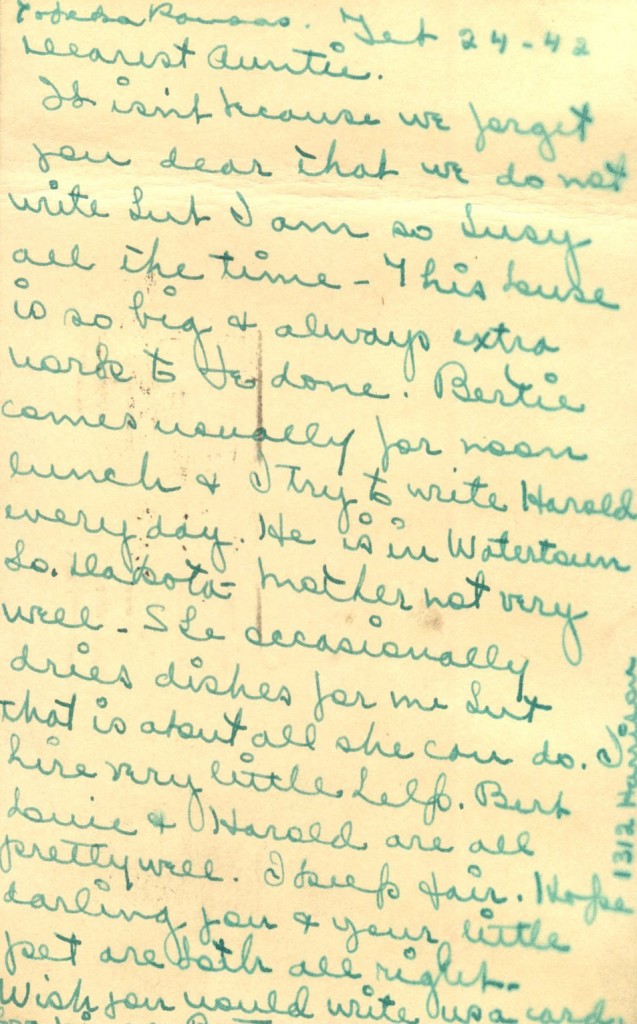 Topeka Kansas. Feb 24-42
Dearest Auntie.
It isn't because we forget
you dear that we do not
write but I am so busy
all the time - This house
is so big & always extra
work to be done. Bertie
comes usually for noon
lunch & I try to write Harold
every day. He is in Watertown
So. Dakota - Mother not very
well - She occasionally
dries dishes for me but
that is about all she can do. I
hire very little help. Bert
Louie & Harold are all
pretty well. I keep fair. Hope
darling you & your little
pet are both all right.
Wish you would write us a card.
1312 Harrison